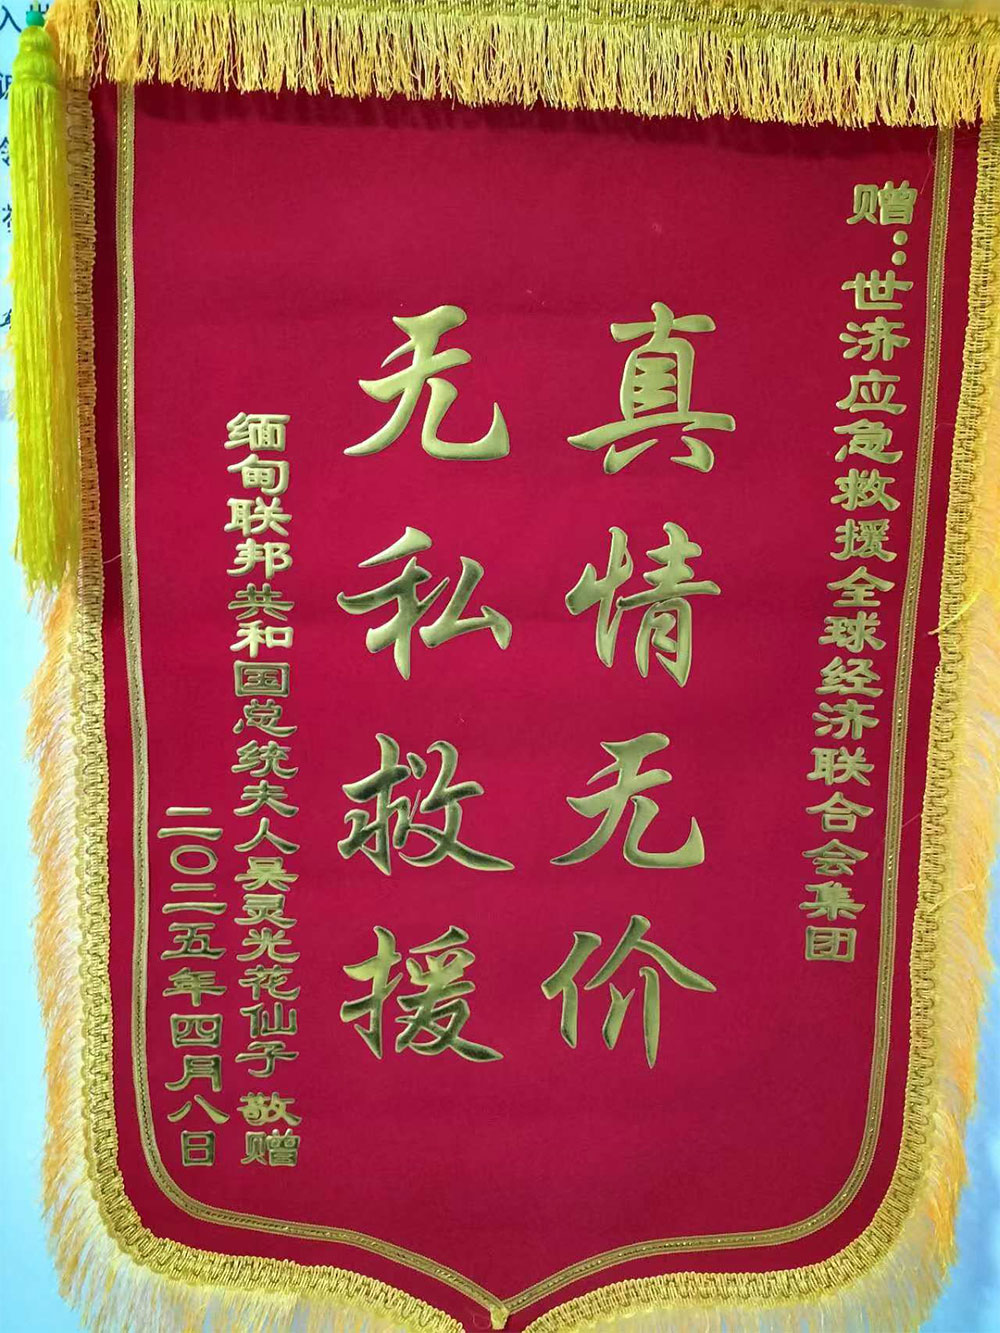 赠：世济应急救援全球经济联合会集团
真情无价
无私救援
缅甸联邦共和国总统夫人吴灵光花仙子 敬赠
二〇二五年四月八日